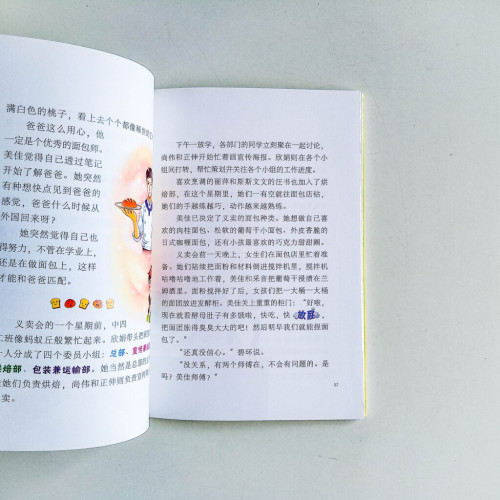 满白色的桃子，看上去个个都像
爸爸这么用心，他
一定是个优秀的面包师。
美佳觉得自己通过笔记
开始了解爸爸。她突然
有种想快点见到爸爸的
感觉，爸爸什么时候从
外国回来呀？
她突然觉得自己也
得努力，不管在学业上，
还是在做面包上，这样
才能和爸爸匹配。
义卖会的一个星期前，中四
二班像蚂蚁丘般繁忙起来。欣娟带头把
一人分成了四个委员小组：
烘焙部、包装兼运输部。她当然是总
让她们负责烘焙，尚伟和正伸则负责宣传
卖。
下午一放学，各部门的同学立刻聚在一起讨论，
尚伟和正伸开始忙着画宣传海报。欣娟则在各个小
组间打转，帮忙策划并关注各个小组的工作进度。
喜欢烹调的丽萍和斯斯文文的汪书也加入了烘
焙，在这个星期里，她们一有空就往面包店钻，
她们的手越练越巧，动作越来越熟练。
美佳已决定了义卖的面包种类。她想做自己喜
欢的肉桂面包、松软的葡萄干小面包、外皮香脆的
日式咖喱面包，还有小孩最喜欢的巧克力甜甜圈。
义卖会前一天晚上，女生们在面包店里忙着准
备。她们陆续把面粉和材料倒进搅拌机里，搅拌机
咕噜咕噜地工作着，美佳和采肯把葡萄干浸渍在兰
姆酒里。面粉搅拌好了后，女孩们把一大桶一大桶
的面团放进发酵柜。美佳关上重重的柜门：“好啦，
现在就看酵母肚子有多饿啦，快吃，快放屁，
把面团胀得臭臭大大的吧！然后明早我们就能捏面
包了。”
“还真没信心。”碧环说。
“没关系，有两个师傅在，不会有问题的。是
吗？美佳师傅？”
37